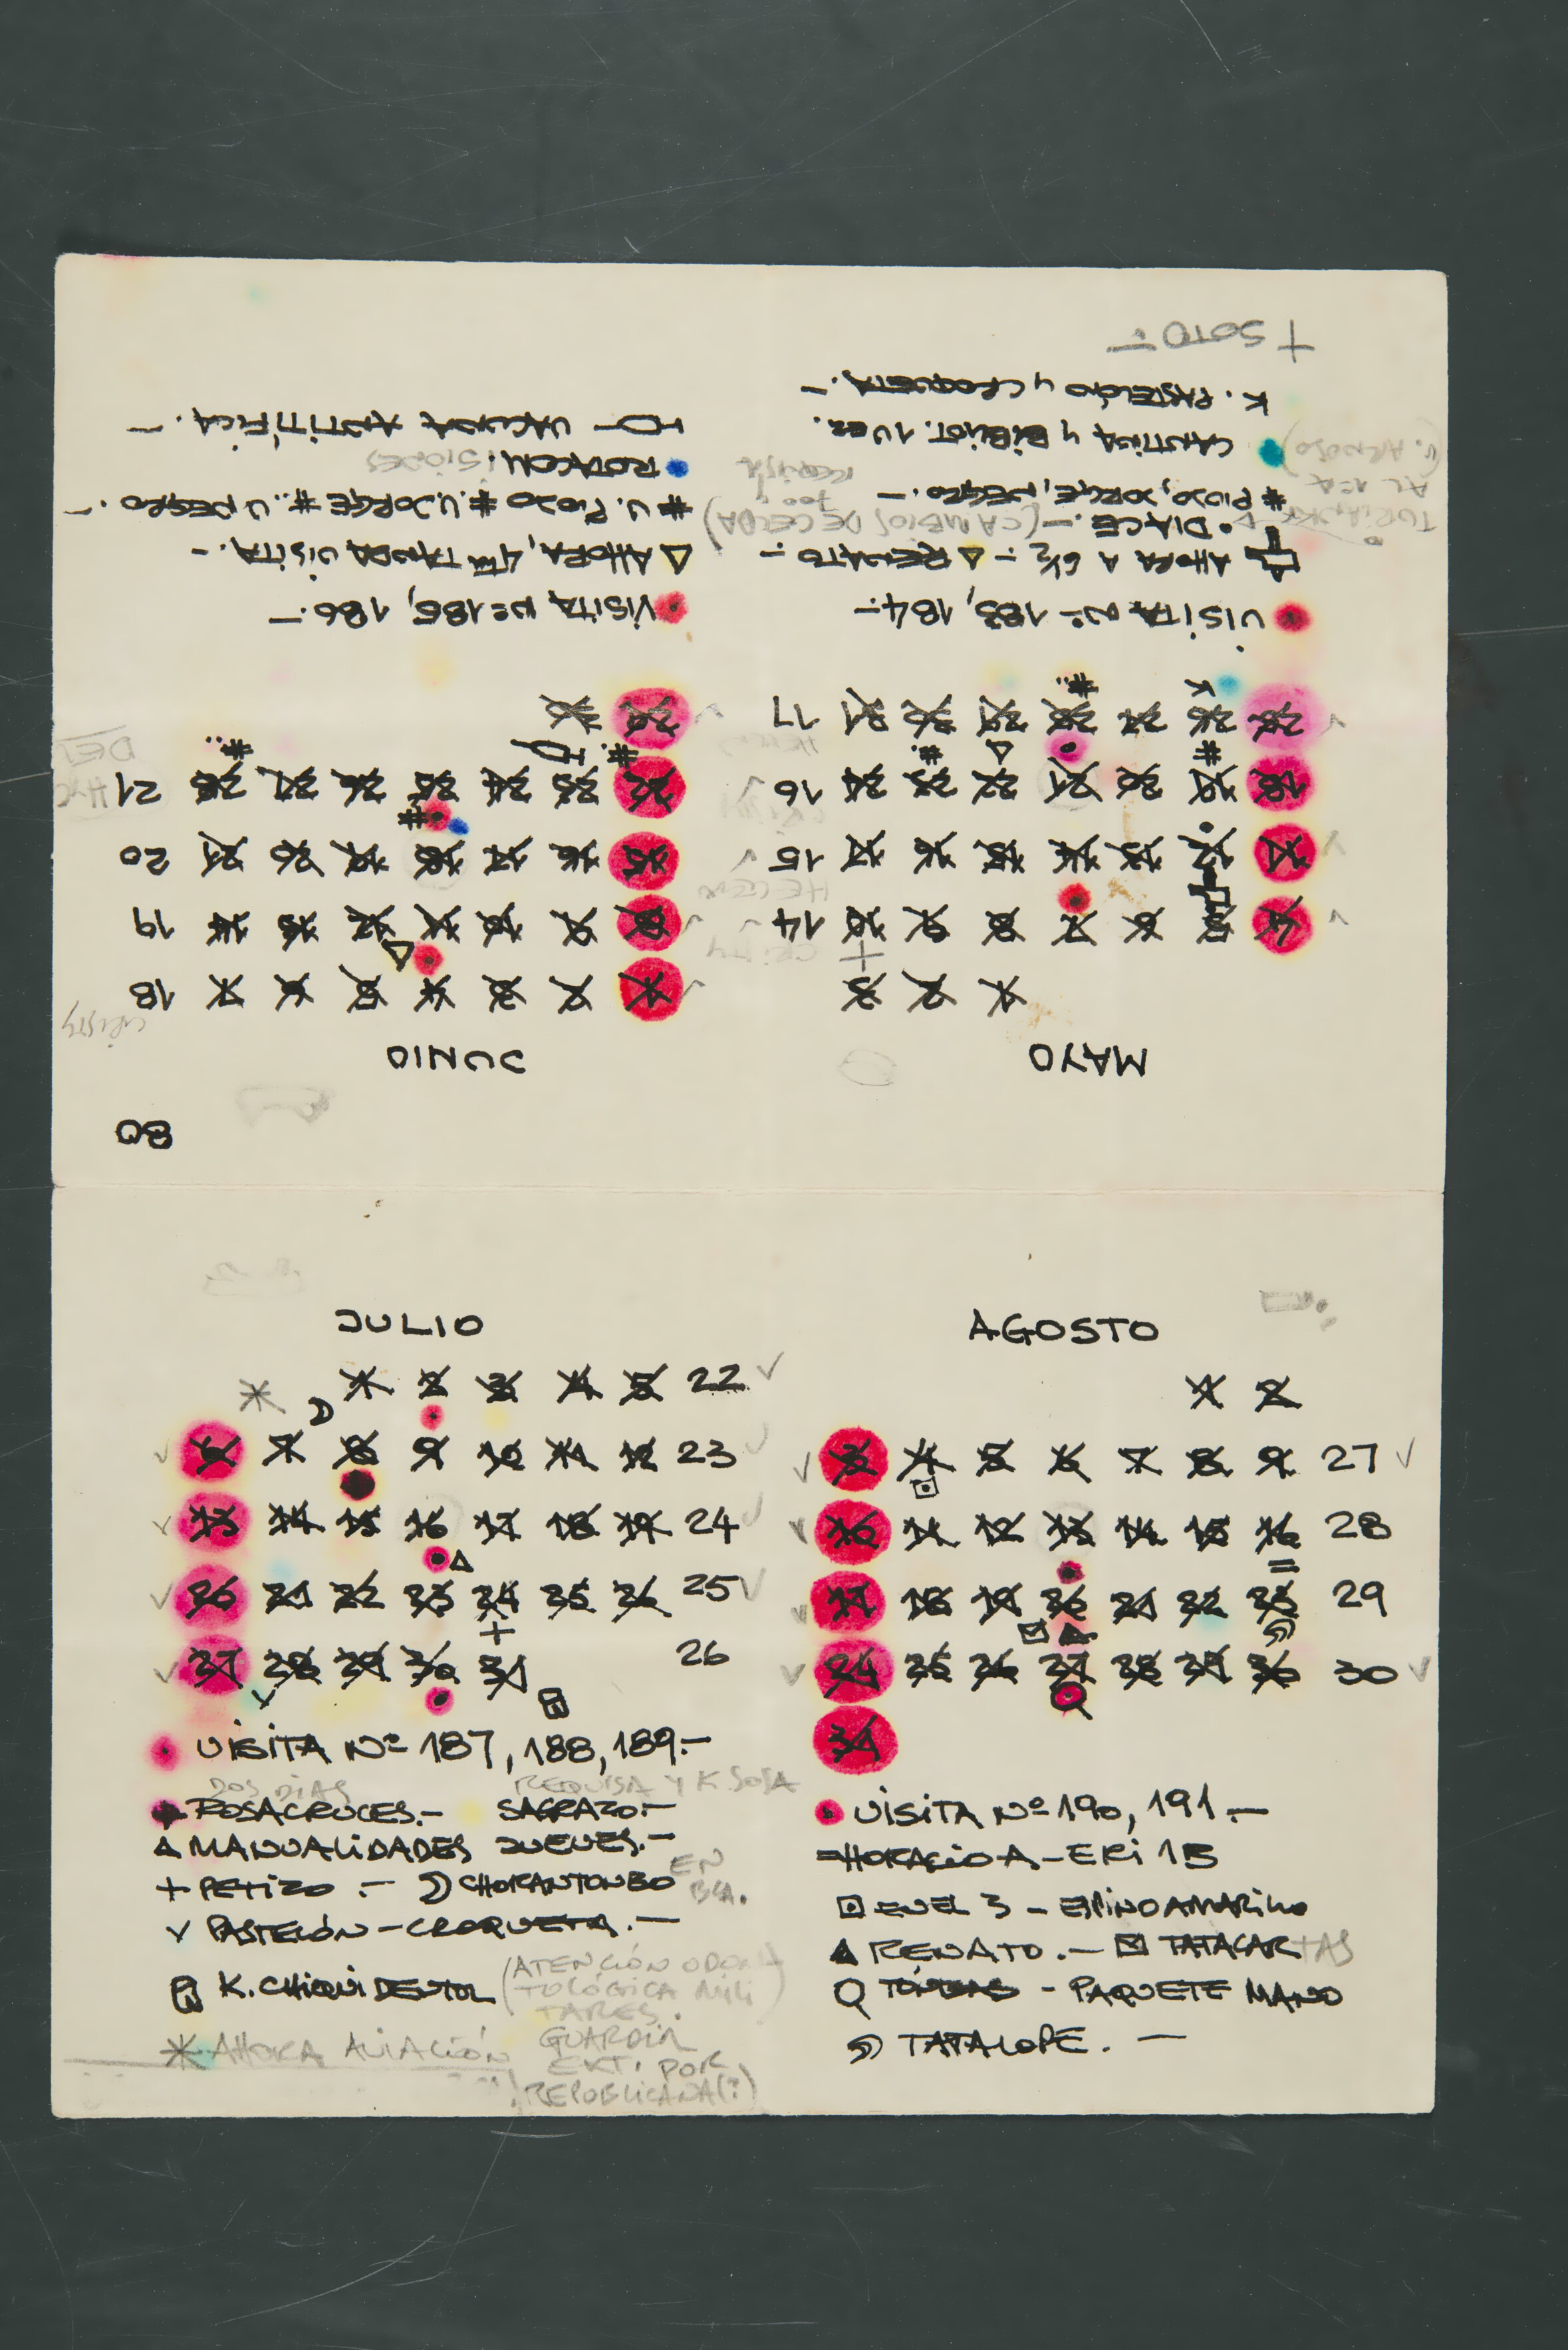 80
MAYO
1 2 3
4 5 6 7 8 9 10 14
11 12 13 14 15 16 17 15
18 19 20 21 22 23 24 16
25 26 27 28 29 30 31 17
VISITA Nº 183, 184.—
AHORA A 6½ — △ RENATO —
• DIACE.— (CAMBIOS DE CELDA)
# PIOJO, JORGE, NEGRO.—
CANTINA Y BIBLIOT. 1 VEZ.
K. PASTELÓN Y CROQUETA.—
+ SOTO —
JUNIO
CRISTY
1 2 3 4 5 6 7 18
8 9 10 11 12 13 14 19
15 16 17 18 19 20 21 20
22 23 24 25 26 27 28 21
29 30
VISITA Nº 185, 186.—
△ AHORA, 4TA TANDA VISITA.—
# V. PIOJO #. V. JORGE #.. V NEGRO.—
ROTACON
VACUNA ANTITÍFICA.—
JULIO
1 2 3 4 5 22
6 7 8 9 10 11 12 23
13 14 15 16 17 18 19 24
20 21 22 23 24 25 26 25
27 28 29 30 31 26
VISITA Nº 187, 188, 189.—
DOS DIAS REQUISA Y K SOSA
ROSACRUCES.— SAGRAZO.—
△ MANUALIDADES JUEVES.—
+ PETIZO .— CHORANTONBO EN
BCA.
PASTELÓN — CROQUETA.—
K. CHIQUI DENTOL (ATENCIÓN ODON
TOLÓGICA MILI
TARES.)
* AHORA AVIACIÓN GUARDIA
EXT. POR
REPUBLICANA(?)
AGOSTO
1 2
3 4 5 6 7 8 9 27
10 11 12 13 14 15 16 28
17 18 19 20 21 22 23 29
24 25 26 27 28 29 30 30
31
VISITA Nº 190, 191.—
= HORACIO A. — ERI 1B
EN EL 3 — ESPINO AMARILLO
▲ RENATO.— TATACARTAS
— PAQUETE MANO
TATALOPE. —